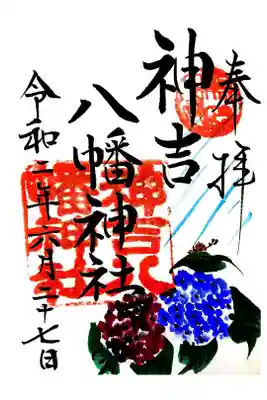 奉拝
神吉
八幡神社
令和二年六月二十七日
神吉八
幡神社